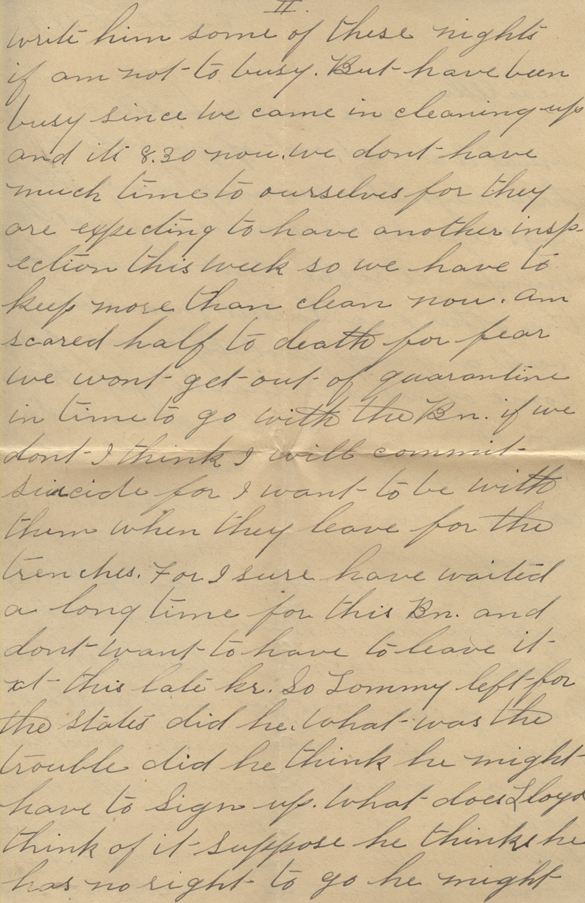 II.
write him some of these nights
if am not to busy. But have been
busy since we came in cleaning up
and its 8.30 now. we dont have
much time to ourselves for they
are expecting to have another insp-
ection this week so we have to
keep more than clean now. am
scared half to death for fear
we wont get out of quarantine
in time to go with the Bn. if we
dont I think I will commit
suicide for I want to be with
them when they leave for the
trenches. For I sure have waited
a long time for this Bn. and
dont want to have to leave it
at this late hr. So Tommy left for
the states did he. What was the
trouble did he think he might
have to sign up. What does Lloyd
think of it suppose he thinks he
has no right to go he might